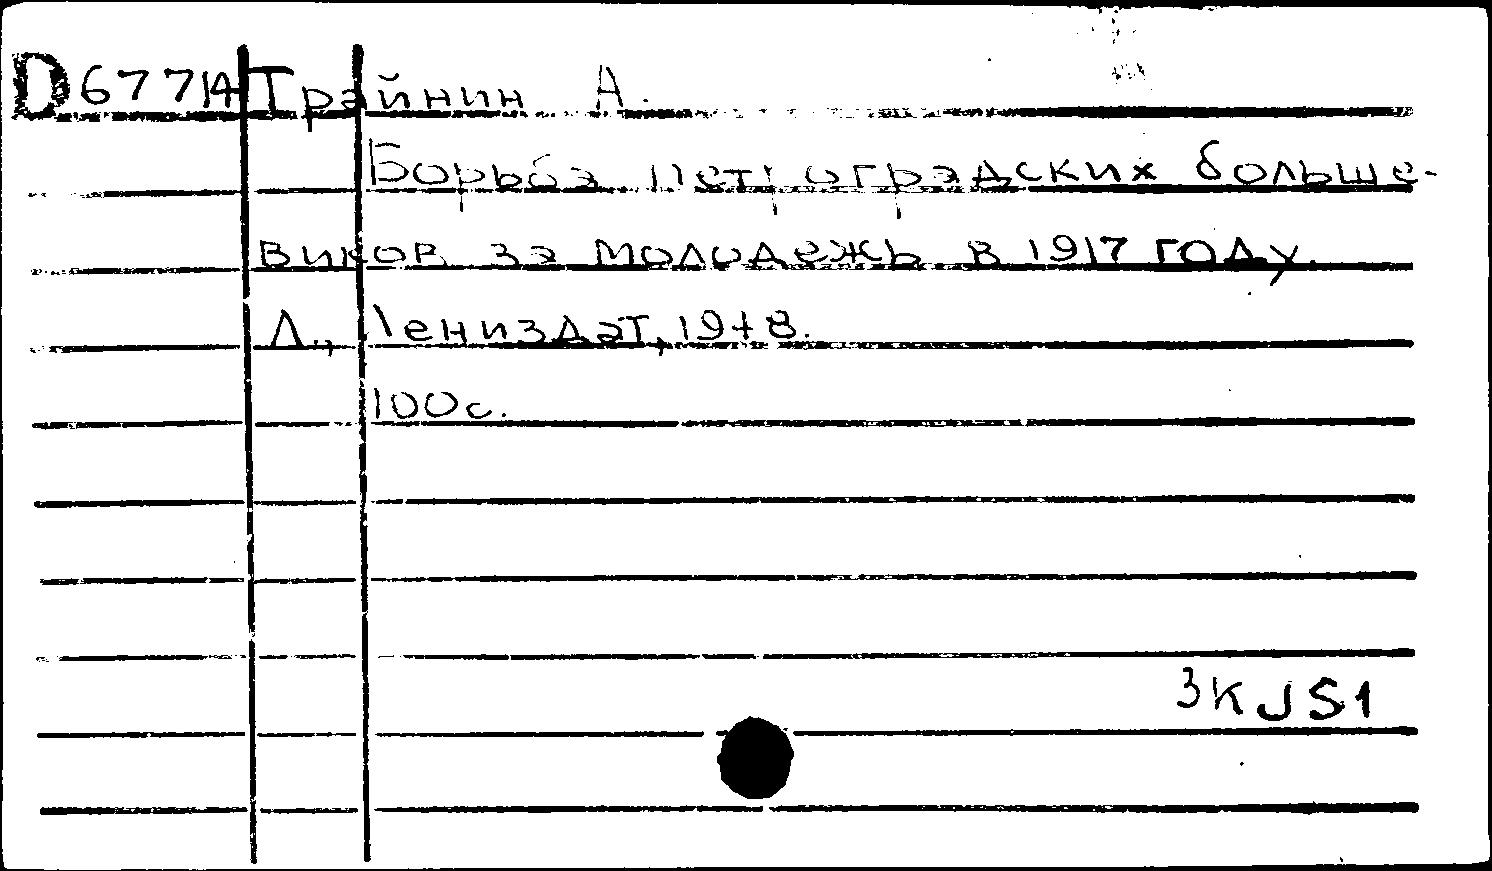 D 67714 Трайнин А.
Борьба петроградских больше-
виков за молодежь в 1917 году.
Л., Лениздат, 1948.
100 с.
3KJS1